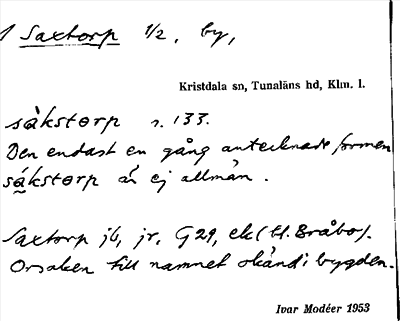 1 Saxtorp 1/2, by,
Kristdala sn, Tunaläns hd, Klm. l.
sàkstorp s. 133.
Den endast en gång antecknade formen
sákstorp är ej allmän.
Saxtorp jb, jr, G29, ek (tl. Bråbo).
Orsaken till namnet okänd i bygden.
Ivar Modéer 1953